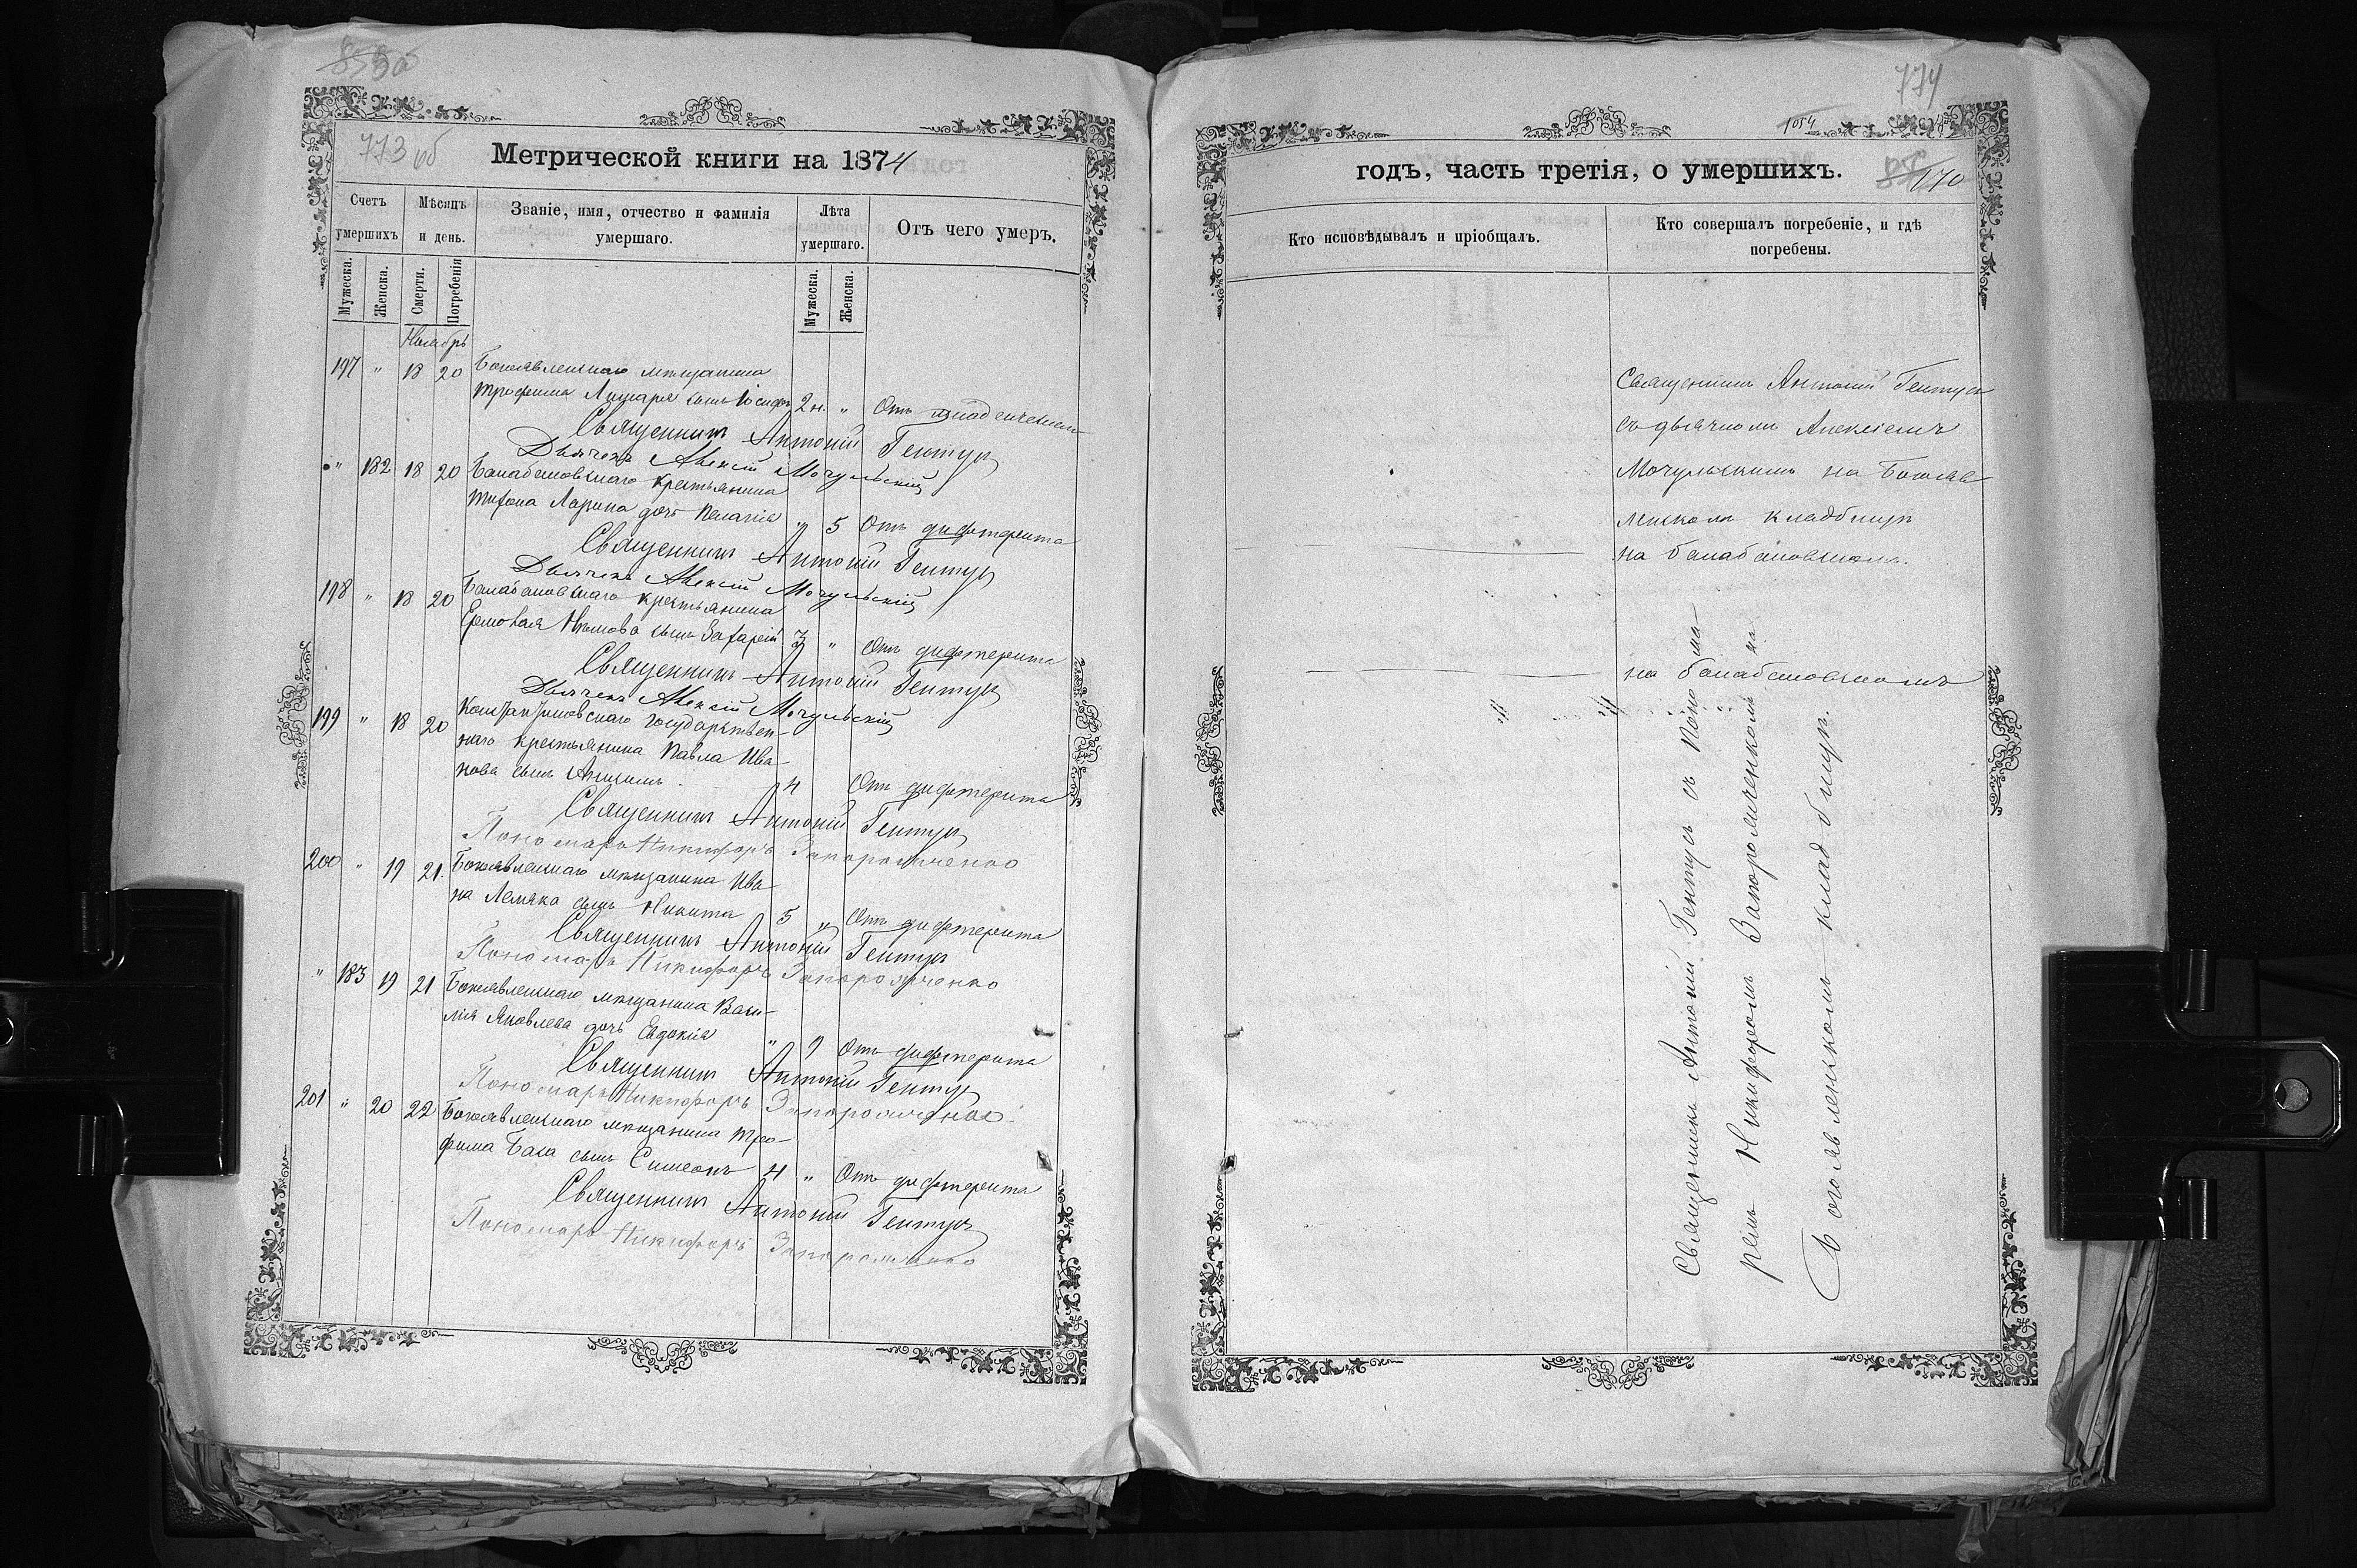 773 об
Метрической книги на 1874
Счетъ умершихъ
Мѣсяцъ и день.
Званіе, имя, отчество и фамилія умершаго.
Лѣта умершаго.
Отъ чего умеръ.
Мужеска.
Женска.
Смерти.
Погребенія
Мужеска.
Женска.
Ноябрь
197 " 18 20 Богоявленскаго мѣщанина
Трофима сынъ Іосифъ 2 н. " Отъ
Священникъ Антоній Гентуръ
Дьячекъ Алексій Мочульскій
" 182 18 20 Балабановскаго крестьянина
Ларина дочь Пелагія " 5 Отъ дифтерита
Священникъ Антоній Гентуръ
Дьячекъ Алексій Мочульскій
198 " 18 20 Балабановскаго крестьянина
Наумова сынъ Захарій 3 " Отъ дифтерита
Священникъ Антоній Гентуръ
Дьячекъ Алексій Мочульскій
199 " 18 20 Константиновскаго государствен-
наго крестьянина Павла Ива-
нова сынъ 4 Отъ дифтерита
Священникъ Антоній Гентуръ
Пономарь Никифоръ Запорожченко
200 " 19 21. Богоявленскаго мѣщанина Ива-
на Лемяка сынъ Никита 5 " Отъ дифтерита
Священникъ Антоній Гентуръ
Пономарь Никифоръ Запорожченко
" 183 19 21 Богоявленскаго мѣщанина Васи-
лія Яковлева дочь Евдокія " 9 Отъ дифтерита
Священникъ Антоній Гентуръ
Пономарь Никифоръ Запорожченко
201 " 20 22 Богоявленскаго мѣщанина Тро-
фима Баса сынъ Симеонъ 4 " Отъ дифтерита
Священникъ Антоній Гентуръ
Пономарь Никифоръ Запорожченко
774
1054
170
годъ, часть третія, о умершихъ.
Кто исповѣдывалъ и пріобщалъ.
Кто совершалъ погребеніе, и гдѣ погребены.
Священникъ Антоній Гентуръ
съ дьячкомъ Алексіемъ
Мочульскимъ на Богояв
ленскомъ кладбищѣ
на балабановскомъ.
на балабановскомъ
Священникъ Антоній Гентуръ съ Понома-
ремъ Никифоромъ Запорожченкомъ на
Богоявленскомъ кладбищѣ.